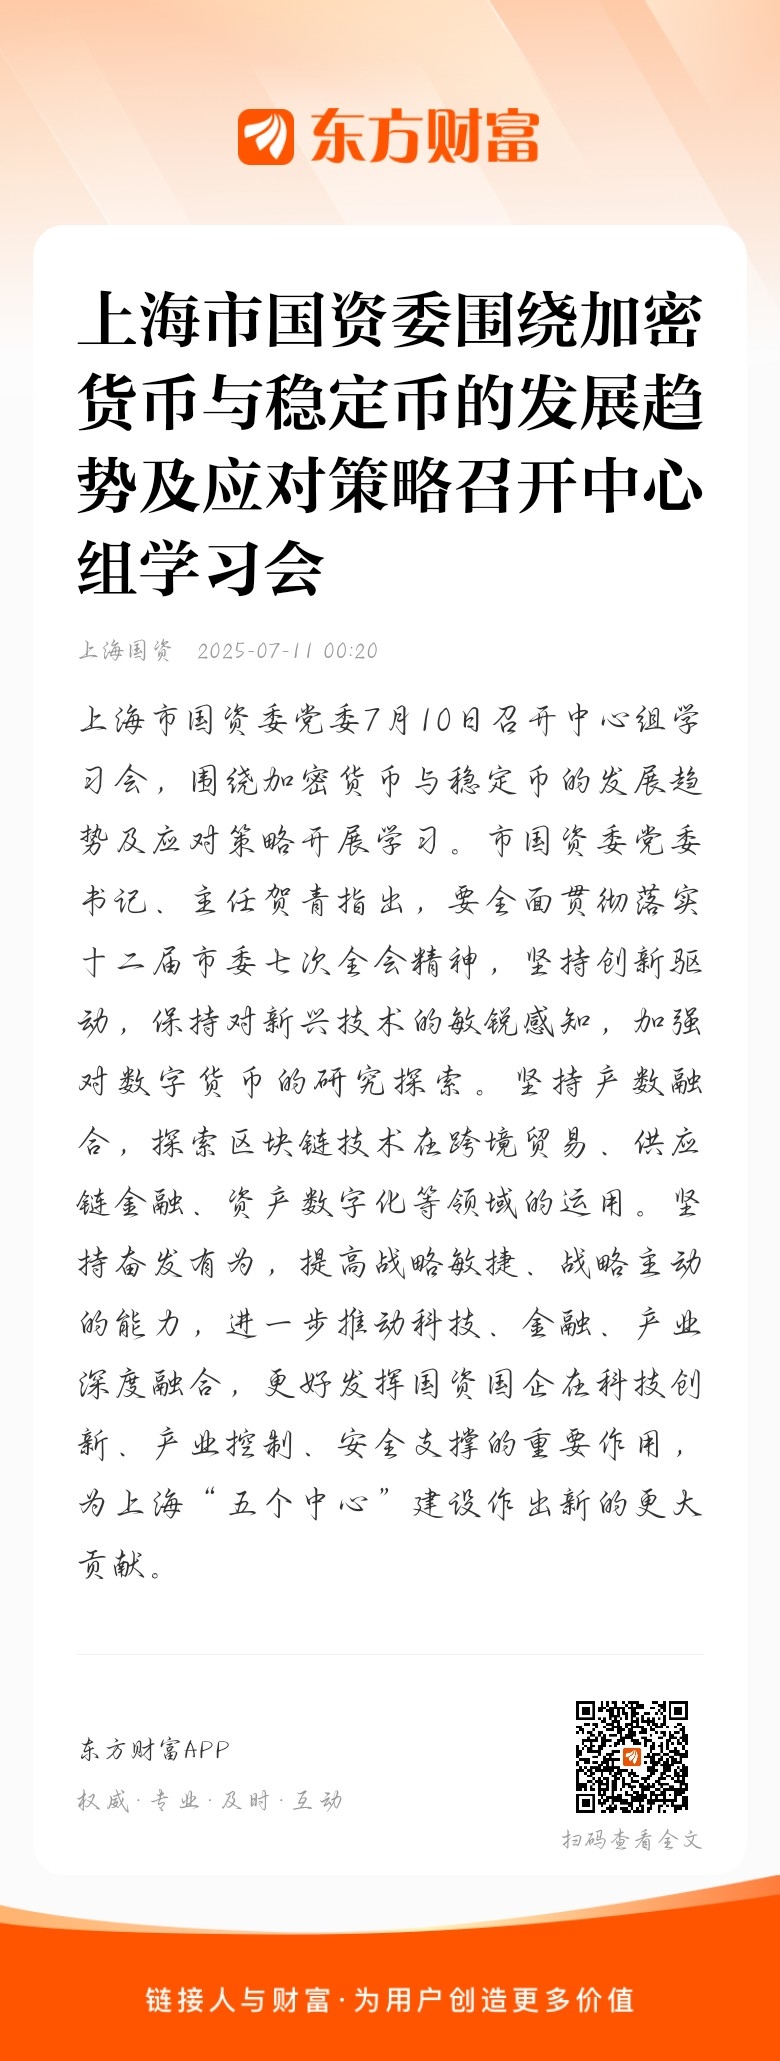 东方财富
上海市国资委围绕加密
货币与稳定币的发展趋
势及应对策略召开中心
组学习会
上海国资 2025-07-11 00:20
上海市国资委党委7月10日召开中心组学
习会，围绕加密货币与稳定币的发展趋
势及应对策略开展学习。市国资委党委
书记、主任贺青指出，要全面贯彻落实
十二届市委七次全会精神，坚持创新驱
动，保持对新兴技术的敏锐感知，加强
对数字货币的研究探索。坚持产数融
合，探索区块链技术在跨境贸易、供应
链金融、资产数字化等领域的运用。坚
持奋发有为，提高战略敏捷、战略主动
的能力，进一步推动科技、金融、产业
深度融合，更好发挥国资国企在科技创
新、产业控制、安全支撑的重要作用，
为上海“五个中心”建设作出新的更大
贡献。
东方财富APP
权威·专业·及时·互动
扫码查看全文
链接人与财富·为用户创造更多价值